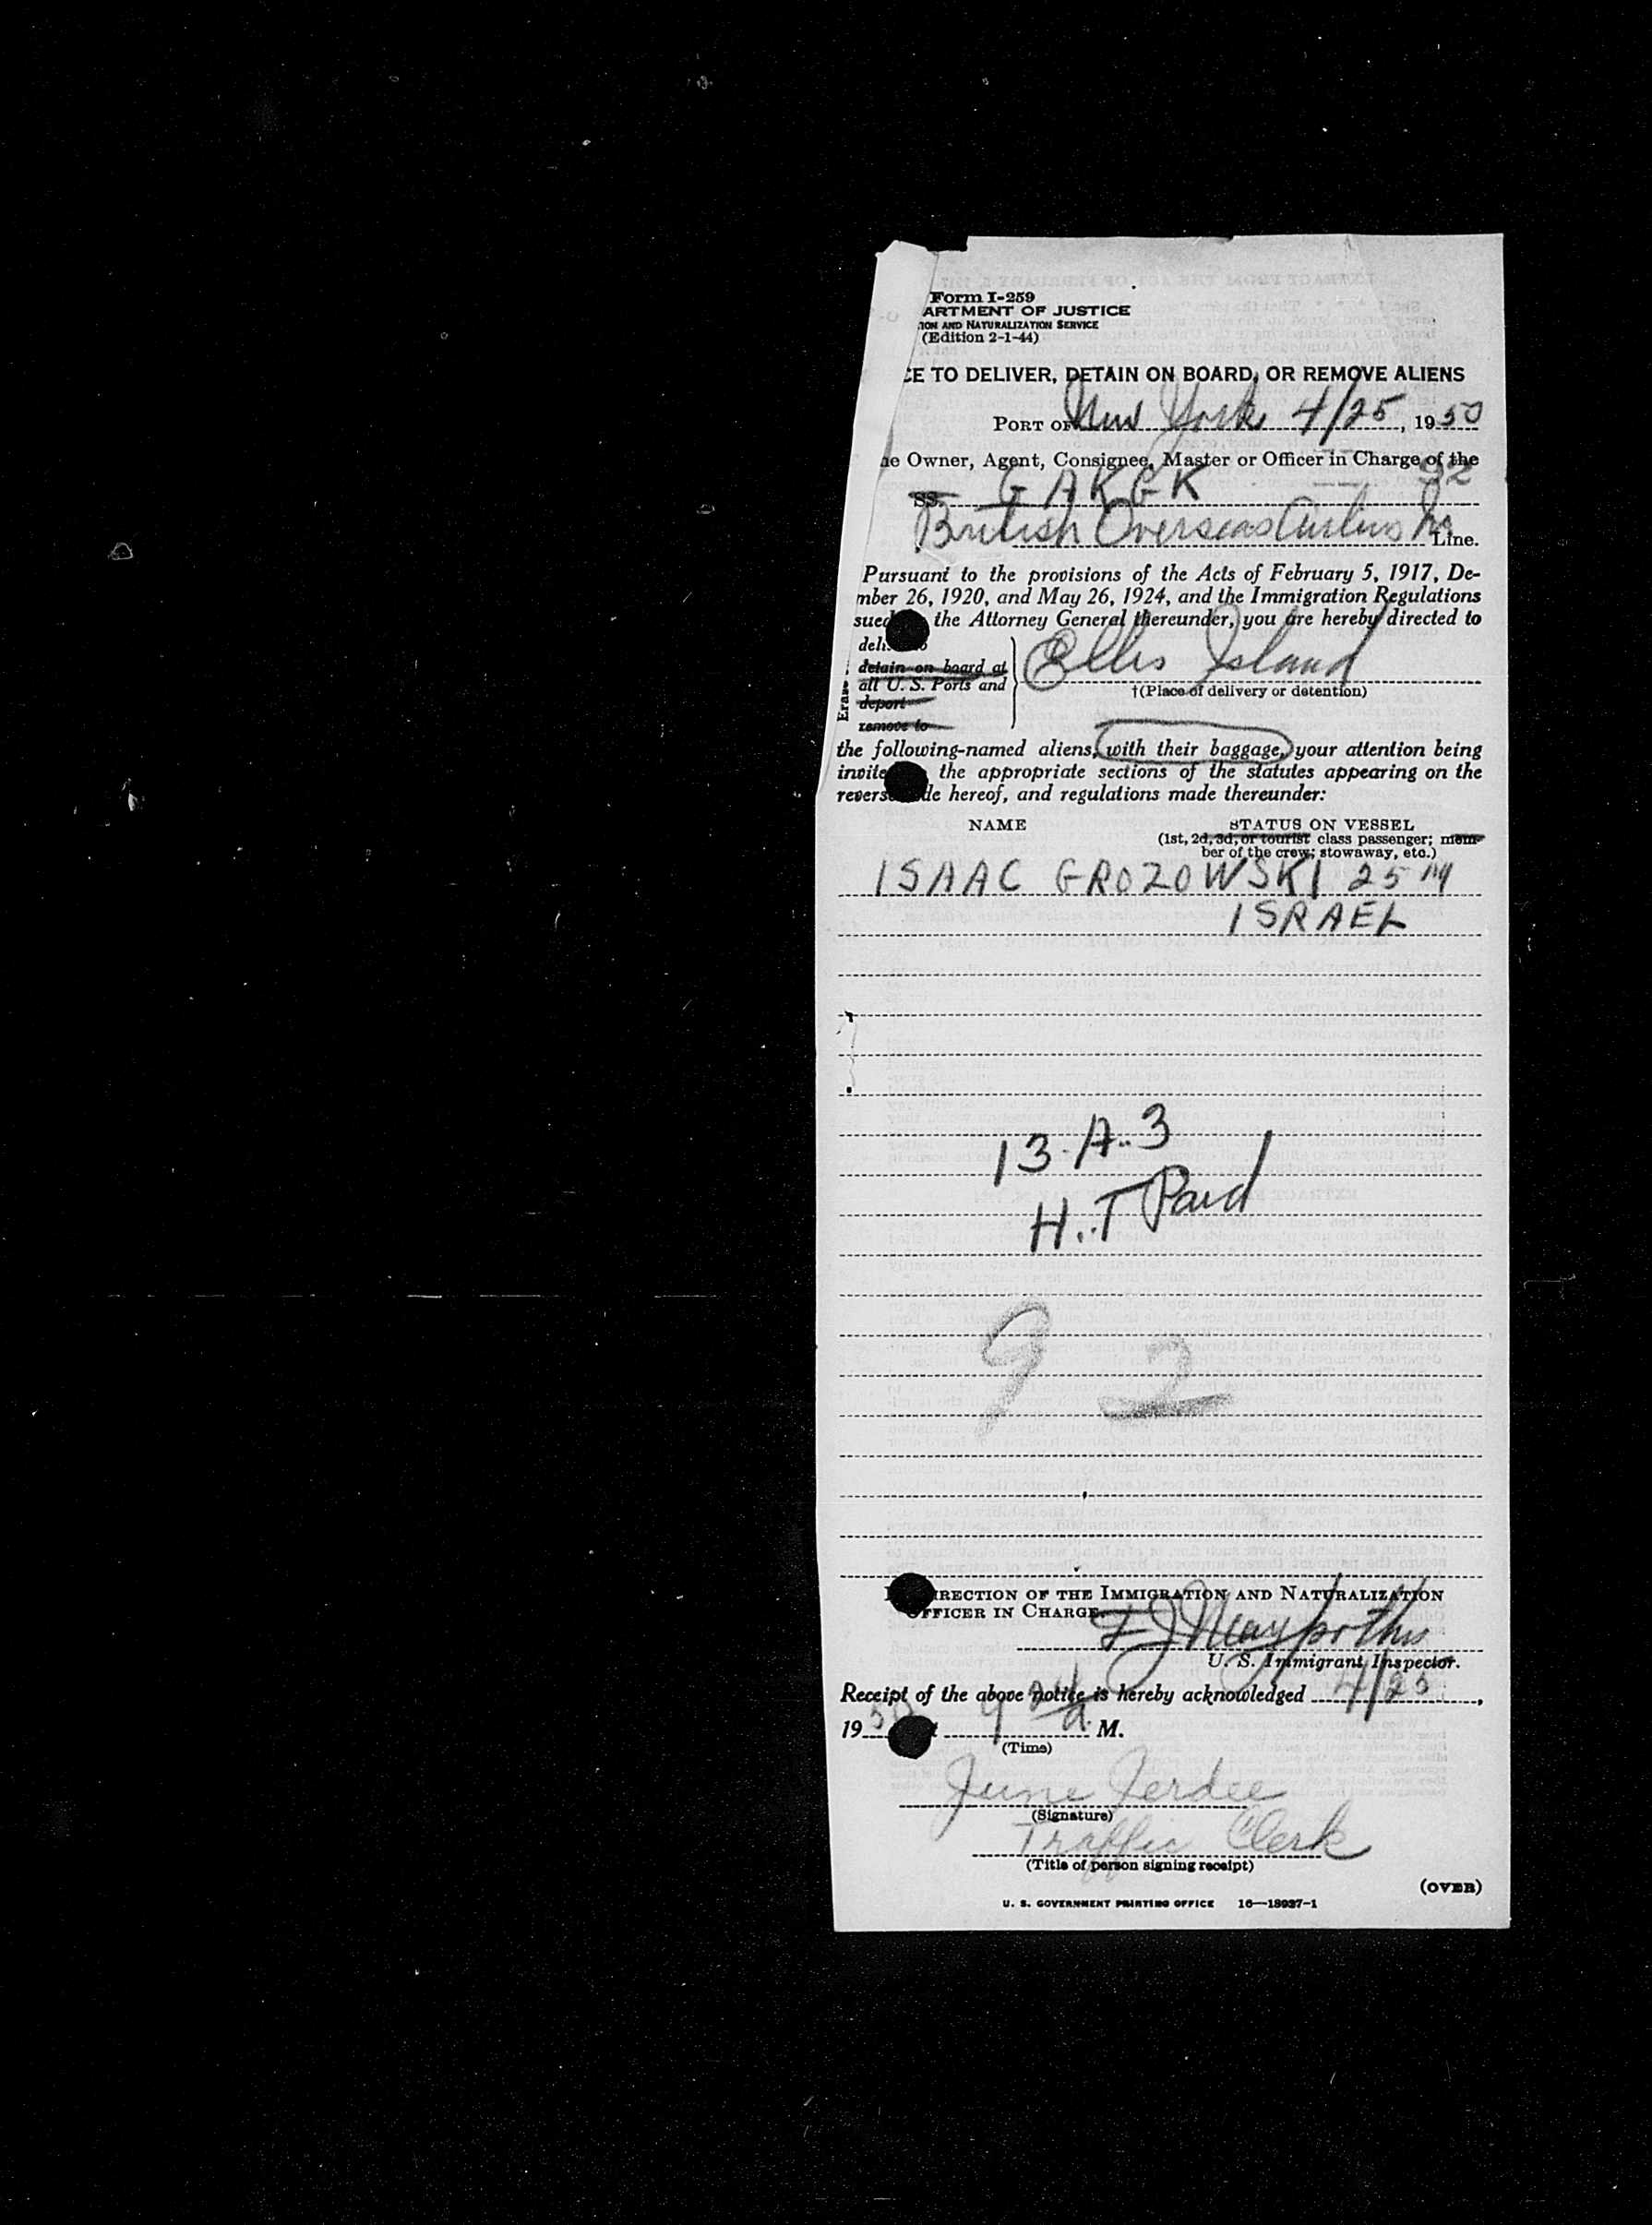 Form I-259
ARTMENT OF JUSTICE
ION AND NATURALIZATION SERVICE
(Edition 2-1-44)
CE TO DELIVER, DETAIN ON BOARD, OR REMOVE ALIENS
PORT OF New York 4/25, 1950
he Owner, Agent, Consignee, Master or Officer in Charge of the
92
SS. G AKGK
British Overseas Airlines Line.
Pursuant to the provisions of the Acts of February 5, 1917, De-
mber 26, 1920, and May 26, 1924, and the Immigration Regulations
sued the Attorney General thereunder, you are hereby directed to
deli
detain on board at
all U. S. Ports and
deport
remove to
Eras
Ellis Island
†(Place of delivery or detention)
the following-named aliens, with their baggage, your attention being
invite the appropriate sections of the statutes appearing on the
revers de hereof, and regulations made thereunder:
NAME STATUS ON VESSEL
(1st, 2d, 3d, or tourist class passenger; mem-
ber of the crew; stowaway, etc.)
ISAAC GROZOWSKI 25 M
ISRAEL
13-A-3
H.T Paid
92
IRECTION OF THE IMMIGRATION AND NATURALIZATION
OFFICER IN CHARGE.
U. S. Immigrant Inspector.
Receipt of the above notice is hereby acknowledged 4/25,
1950 t 9 a. M.
(Time)
June Jerdee
(Signature)
Traffic Clerk
(Title of person signing receipt)
(OVER)
U. S. GOVERNMENT PRINTING OFFICE 16—18937-1